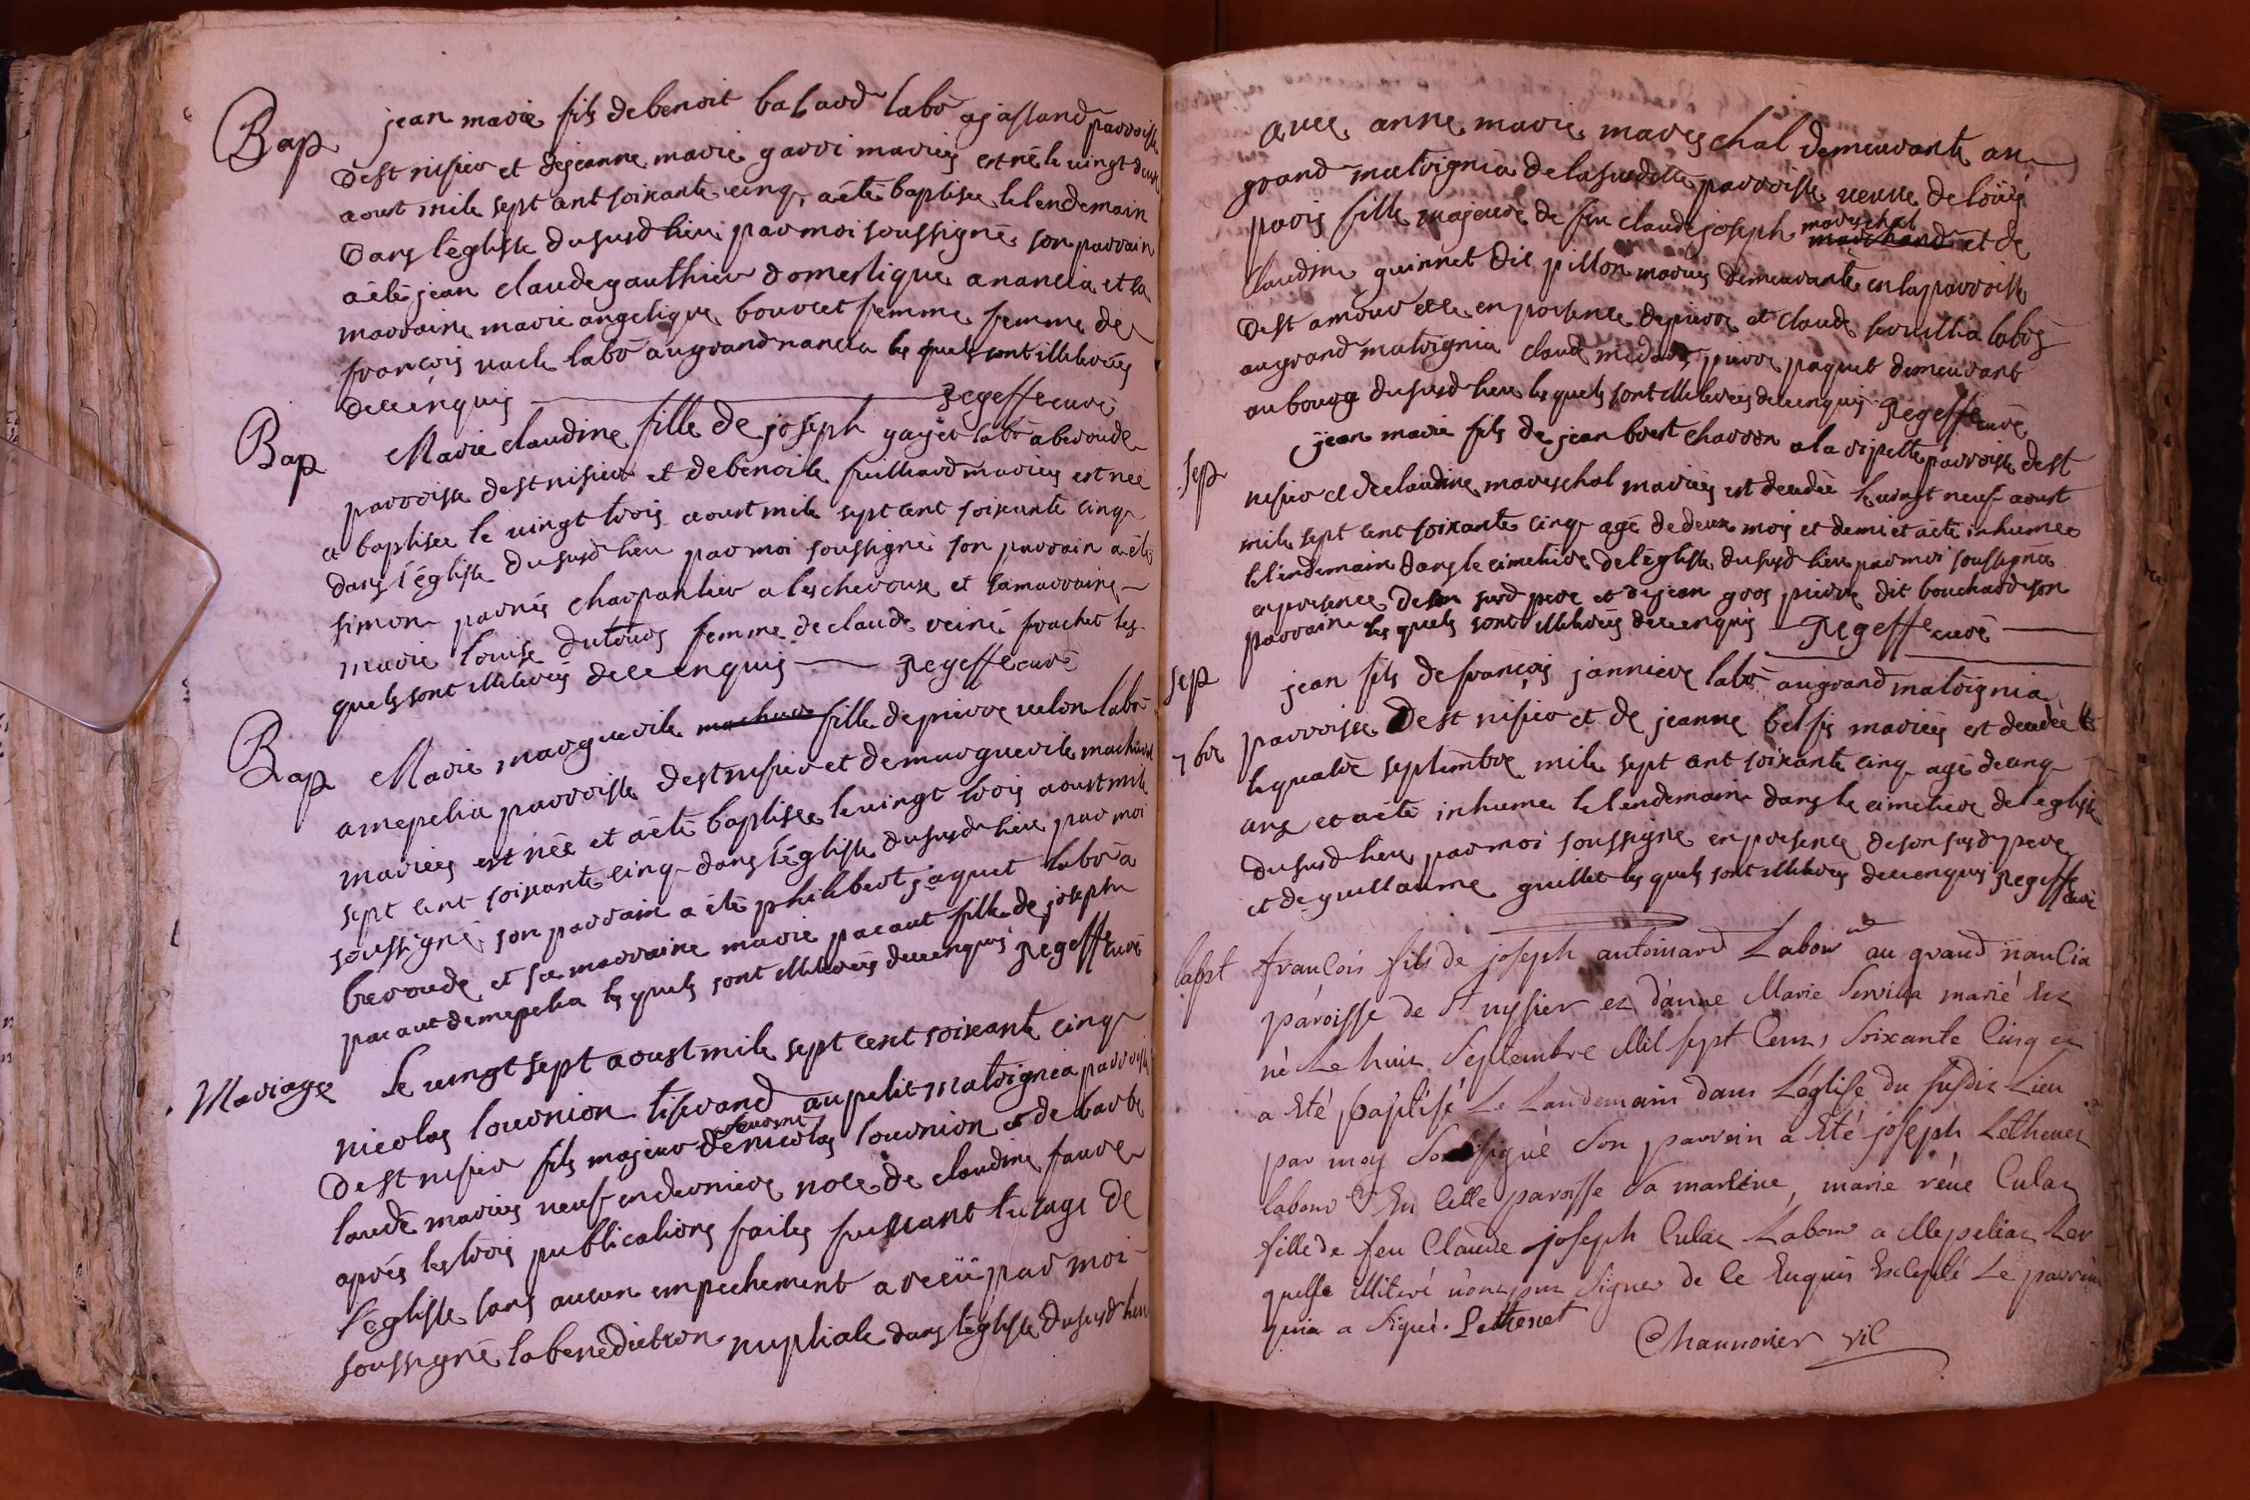 Bap jean marie fils de benoit balard labr a jassand parroisse
de st nisier et de jeanne marie garri mariés est né le vingt deux
aoust mile sept cent soixante cinq, a été baptisée le lendemain
dans l'églisse du susd lieu par moi soussigné son parrain
a été jean claude gauthier domestique a nancia et sa
marraine marie angelique bouvret femme femme de
françois vach labr au grand nancia les quels sont illiterés
de ce enquis regeffe curé
Bap Marie claudine fille de joseph gayet labr a beroude
parroisse de st nisier et de benoite fulliard mariés est née
et baptisée le vingt trois aoust mile sept cent soixante cinq
dans l'églisse du susd lieu par moi soussigné son parrain a été
simon parnés charpantier a leschevouse et sa marraine
marie louise dutours femme de claude reiné frachet les
quels sont illiterés de ce enquis regeffe curé
Bap Marie marguerite fille de pierre velon labr
a mepelia parroisse de st nisier et de marguerite machurat
mariées est née et a été baptisée le vingt trois aoust mile
sept cent soixante cinq dans l'églisse du susd lieu par moi
soussigné. son parrain a été philibert jaquet labr a
beroude et sa marraine marie pacaut fille de joseph
pacaut de mepelia les quels sont illiterés de ce enquis regeffe curé
Mariage Le vingt sept aoust mile sept cent soixante cinq
nicolas lournion tiserand au petit malvignia parroisse
de st nisier fils majeur de nicolas lournion et de barbe
laude mariés veuf en derniere noce de claudine favre
aprés les trois publications faites suivant l'usage de
l'églisse sans aucun empechement a receü par moi
soussigné la benediction nuptiale dans l'églisse du susd lieu
avec anne marie mareschal demeurante au
grand malvignia de la susditte parroisse veuve de loüis
parois fille majeure de feu claude joseph mareschal et de
claudine guinnet dit pillon mariés demeurante en la parroisse
de st amour etc en presence de pierre et claude servillia labrs
au grand malvignia claude pierre paquet demeurant
au bourg du susd lieu les quels sont illiterés de ce enquis regeffe curé
sep jean marie fils de jean boest charron a la ripette parroisse de st
nisier et de claudine mareschal mariés est decedée le vingt neuf aoust
mile sept cent soixante cinq agé de deux mois et demi et a été inhumee
le lendemain dans le cimetiere de l'églisse du susd lieu par moi soussigné
en presence de son susd pere et de jean gros pierre dit bouchard son
parrain les quels sont illiterés de ce enquis regeffe curé
sep jean fils de françois janniere labr au grand malvignia
7bre parroisse de st nisier et de jeanne belfis mariés est decedée
le quatre septembre mile sept cent soixante cinq agé de cinq
ans et a été inhumee le lendemain dans le cimetiere de l'églisse
du susd lieu par moi soussigné en presence de son susd pere
et de guillaume guillet les quels sont illiterés de ce enquis regeffe curé
bapt françois fils de joseph antoinard Labour au grand nancia
paroisse de St nysier et d'anne Marie Servilla marié Est
né Le huit Septembre Mil sept Cent Soixante Cinq et
a Eté baptisé Le Landemain dans L'église du susdit Lieu
par moy Soussigné Son parrein a Eté joseph Lethenet
labour En Cette paroisse Sa marêne, marie réne Culas
fille de feu Claude joseph Culas Labour a Mepelias Les
quelfe illiteré n'ont pus signer de Ce Enquis Excepté Le parrin
qui a Signé. Lethenet
Channonier vic